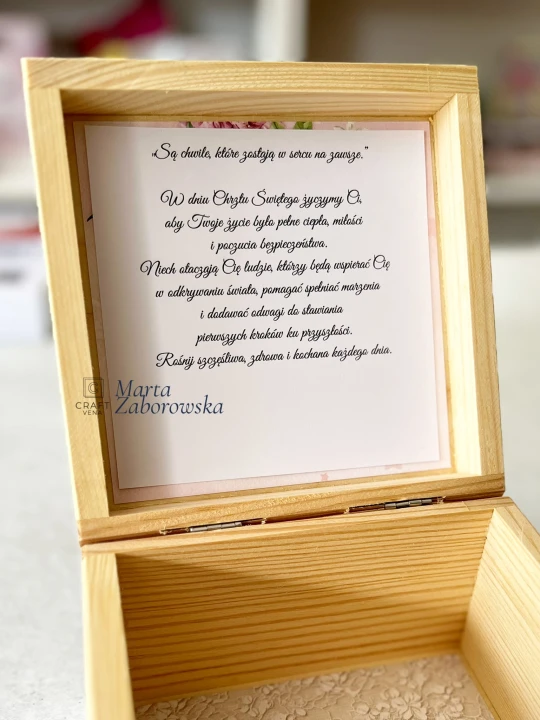 „Są chwile, które zostają w sercu na zawsze.”
W dniu Chrztu Świętego życzymy Ci,
aby Twoje życie było pełne ciepła, miłości
i poczucia bezpieczeństwa.
Niech otaczają Cię ludzie, którzy będą wspierać Cię
w odkrywaniu świata, pomagać spełniać marzenia
i dodawać odwagi do stawiania
pierwszych kroków ku przyszłości.
Rośnij szczęśliwa, zdrowa i kochana każdego dnia.
CRAFT
VENA
Marta
Zaborowska